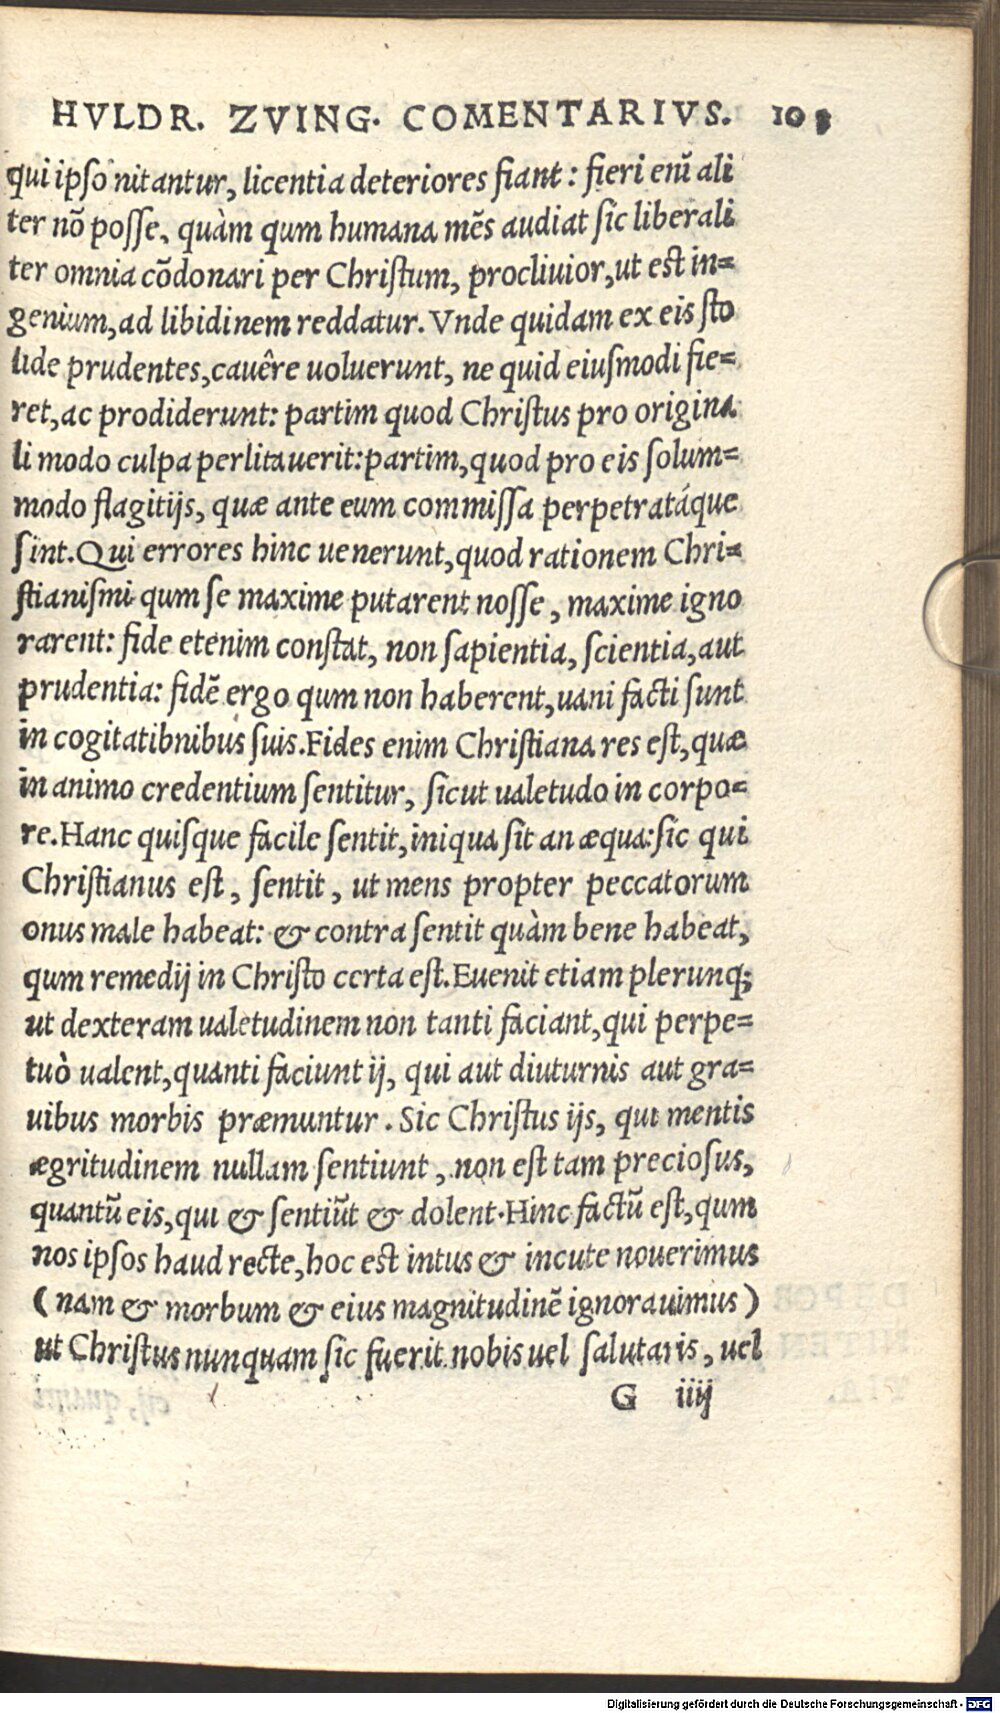 HVLDR. ZVING. COMENTARIVS. 103
qui ipso nitantur, licentia deteriores fiant: fieri enĩ ali
ter nõ posse, quàm qum humana mẽs audiat sic liberali
ter omnia cõdonari per Christum, procliuior, ut est in=
genium, ad libidinem reddatur. Vnde quidam ex eis sto
lide prudentes, cauêre uoluerunt, ne quid eiusmodi fie=
ret, ac prodiderunt: partim quod Christus pro origina
li modo culpa perlitauerit: partim, quod pro eis solum=
modo flagitijs, quæ ante eum commissa perpetratáque
sint. Qui errores hinc uenerunt, quod rationem Chri=
stianismi qum se maxime putarent nosse, maxime igno
rarent: fide etenim constat, non sapientia, scientia, aut
prudentia: fidẽ ergo qum non haberent, uani facti sunt
in cogitatibnibus suis. Fides enim Christiana res est, quæ
in animo credentium sentitur, sicut ualetudo in corpo=
re. Hanc quisque facile sentit, iniqua sit an æqua: sic qui
Christianus est, sentit, ut mens propter peccatorum
onus male habeat: & contra sentit quàm bene habeat,
qum remedij in Christo certa est. Euenit etiam plerunq;
ut dexteram ualetudinem non tanti faciant, qui perpe=
tuò ualent, quanti faciunt ij, qui aut diuturnis aut gra=
uibus morbis præmuntur. Sic Christus ijs, qui mentis
ægritudinem nullam sentiunt, non est tam preciosus,
quantũ eis, qui & sentiũt & dolent. Hinc factũ est, qum
nos ipsos haud recte, hoc est intus & incute nouerimus
(nam & morbum & eius magnitudinẽ ignorauimus)
ut Christus nunquam sic fuerit nobis uel salutaris, uel
G iiij
Digitalisierung gefördert durch die Deutsche Forschungsgemeinschaft - DFG